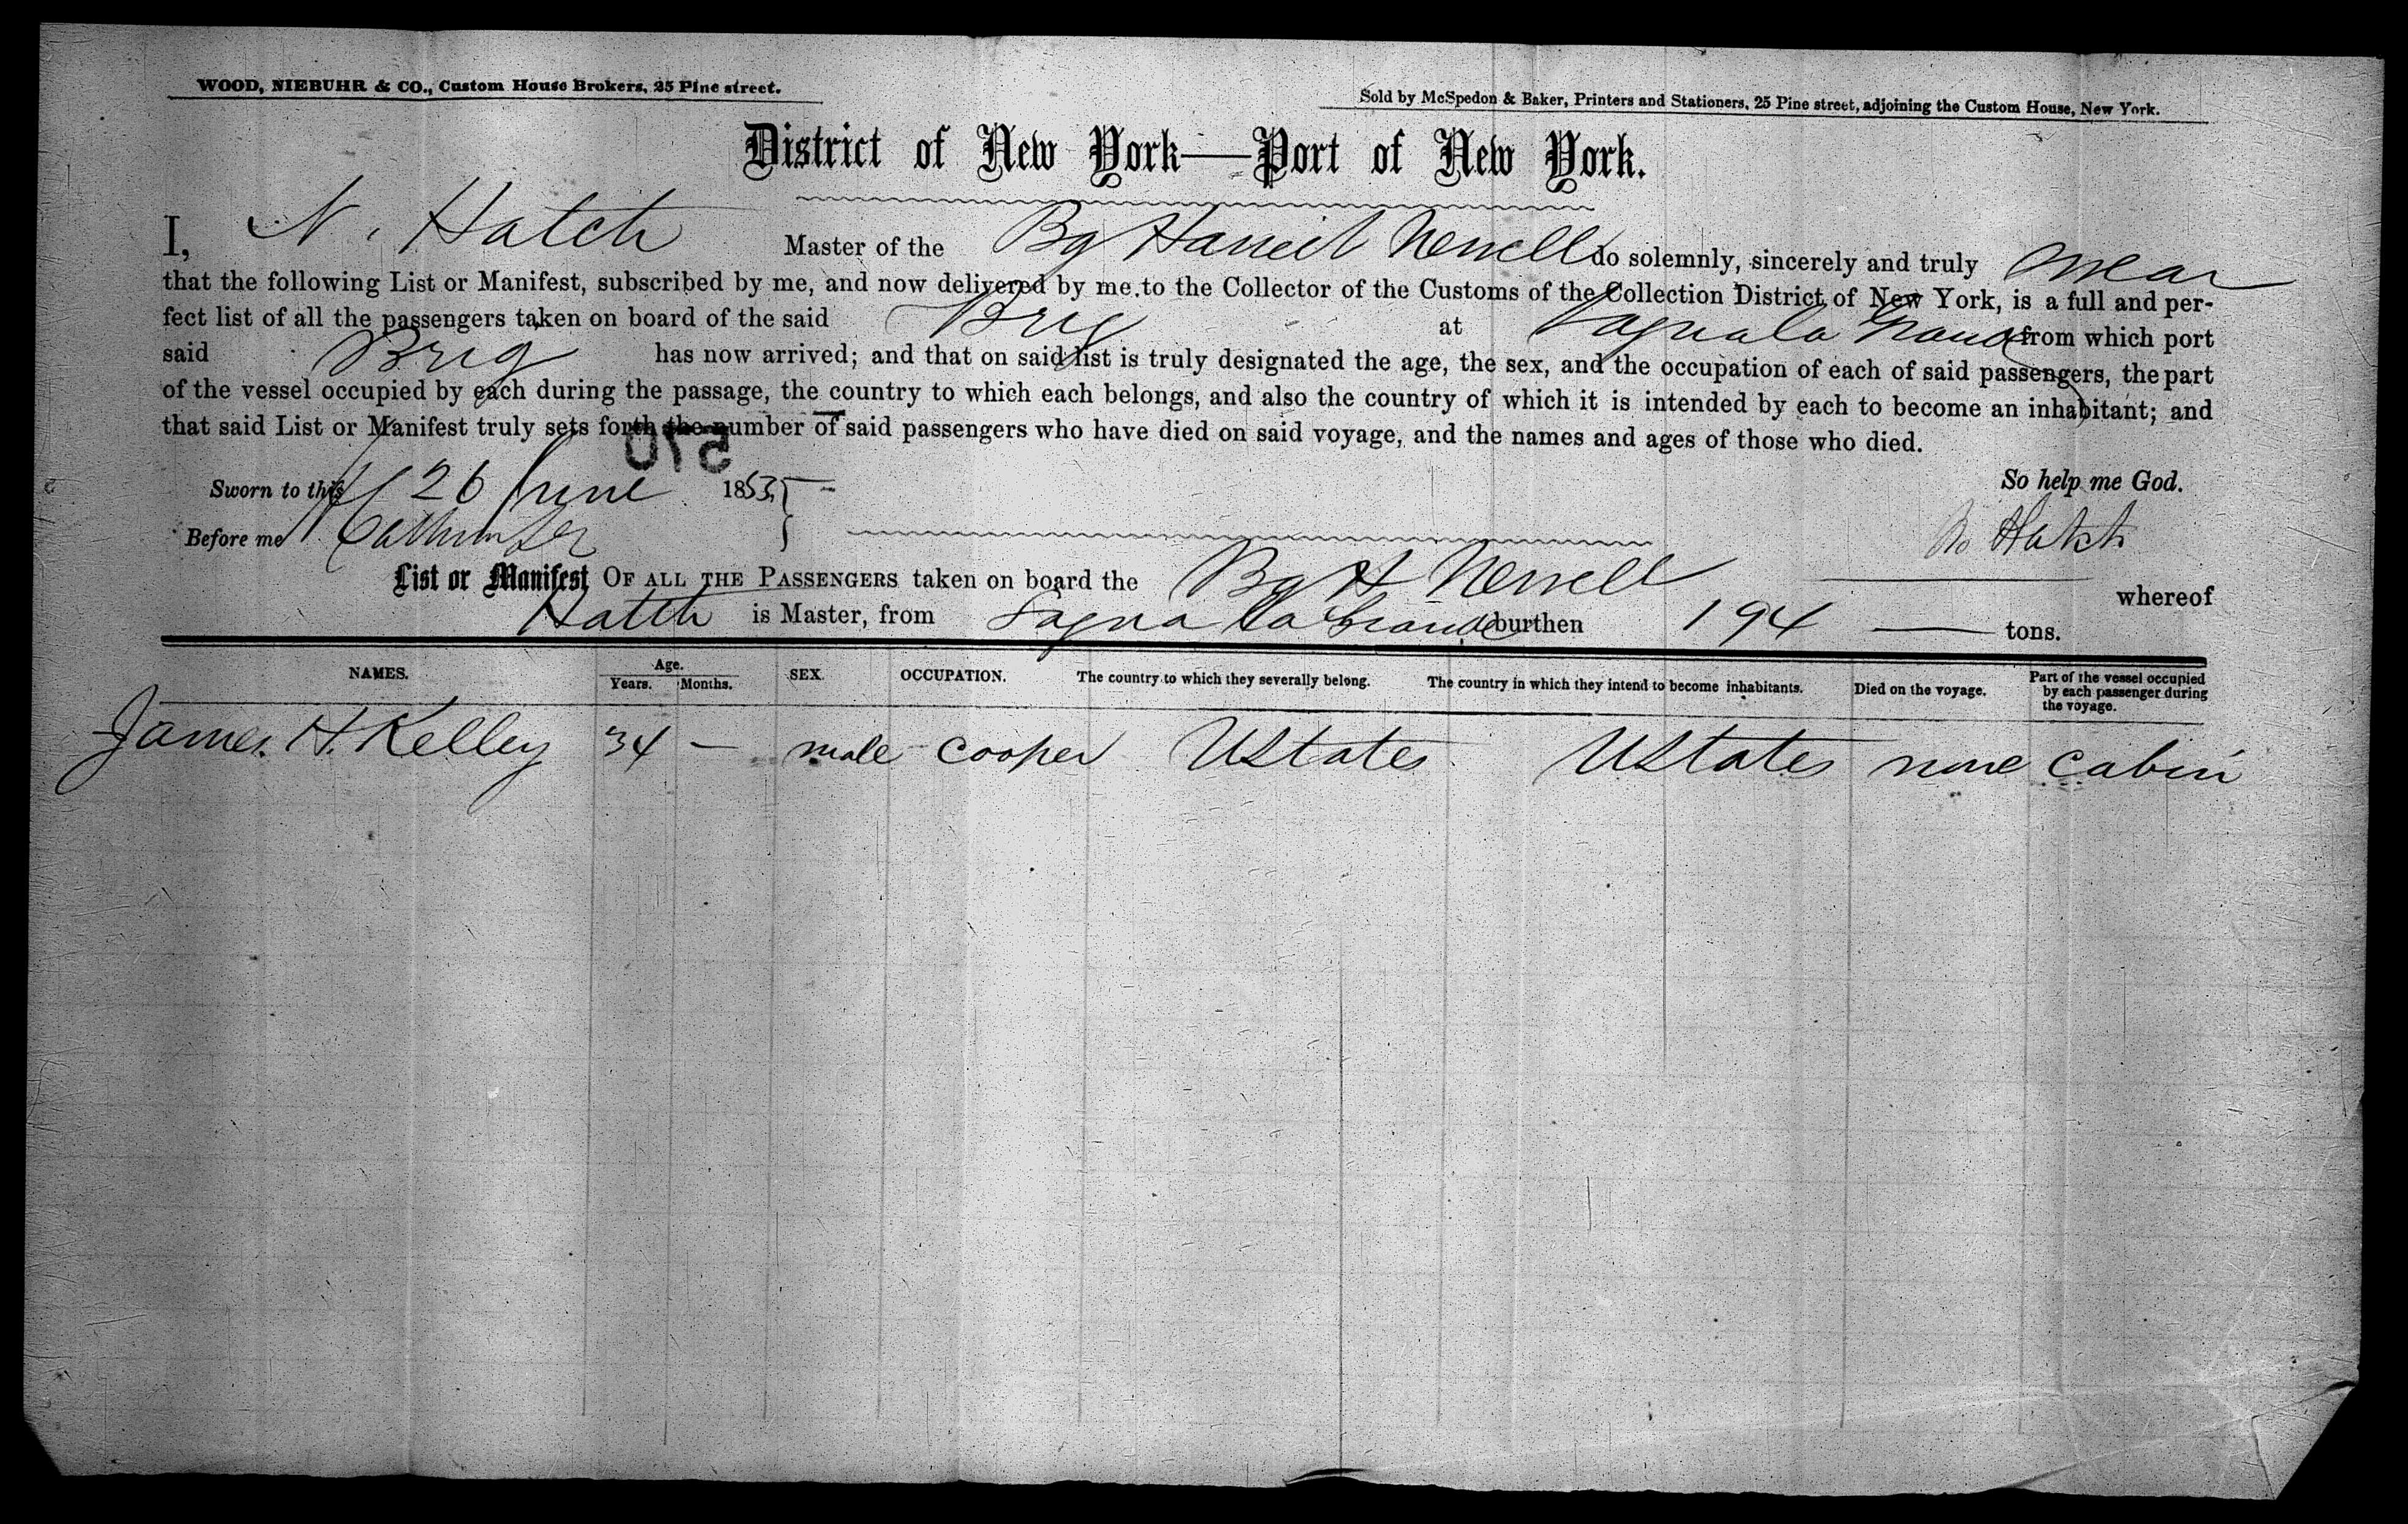 WOOD, NIEBUHR & CO., Custom House Brokers, 25 Pine street.
Sold by McSpedon & Baker, Printers and Stationers, 25 Pine street, adjoining the Custom House, New York.
District of New York—Port of New York.
I, N. Hatch Master of the Bg Harriet Newell do solemnly, sincerely and truly swear
that the following List or Manifest, subscribed by me, and now delivered by me to the Collector of the Customs of the Collection District of New York, is a full and per-
fect list of all the passengers taken on board of the said Brig at Sagua la Grande from which port
said Brig has now arrived; and that on said list is truly designated the age, the sex, and the occupation of each of said passengers, the part
of the vessel occupied by each during the passage, the country to which each belongs, and also the country of which it is intended by each to become an inhabitant; and
that said List or Manifest truly sets forth the number of said passengers who have died on said voyage, and the names and ages of those who died.
570
Sworn to this 26 June 1853, So help me God.
Before me
N Hatch
List or Manifest OF ALL THE PASSENGERS taken on board the Bg H Newell whereof
Hatch is Master, from Sagua la Grande burthen 194 tons.
NAMES. Age. Years. Months. SEX. OCCUPATION. The country to which they severally belong. The country in which they intend to become inhabitants. Died on the voyage. Part of the vessel occupied by each passenger during the voyage.
James H. Kelley 34 — male cooper UStates UStates none cabin